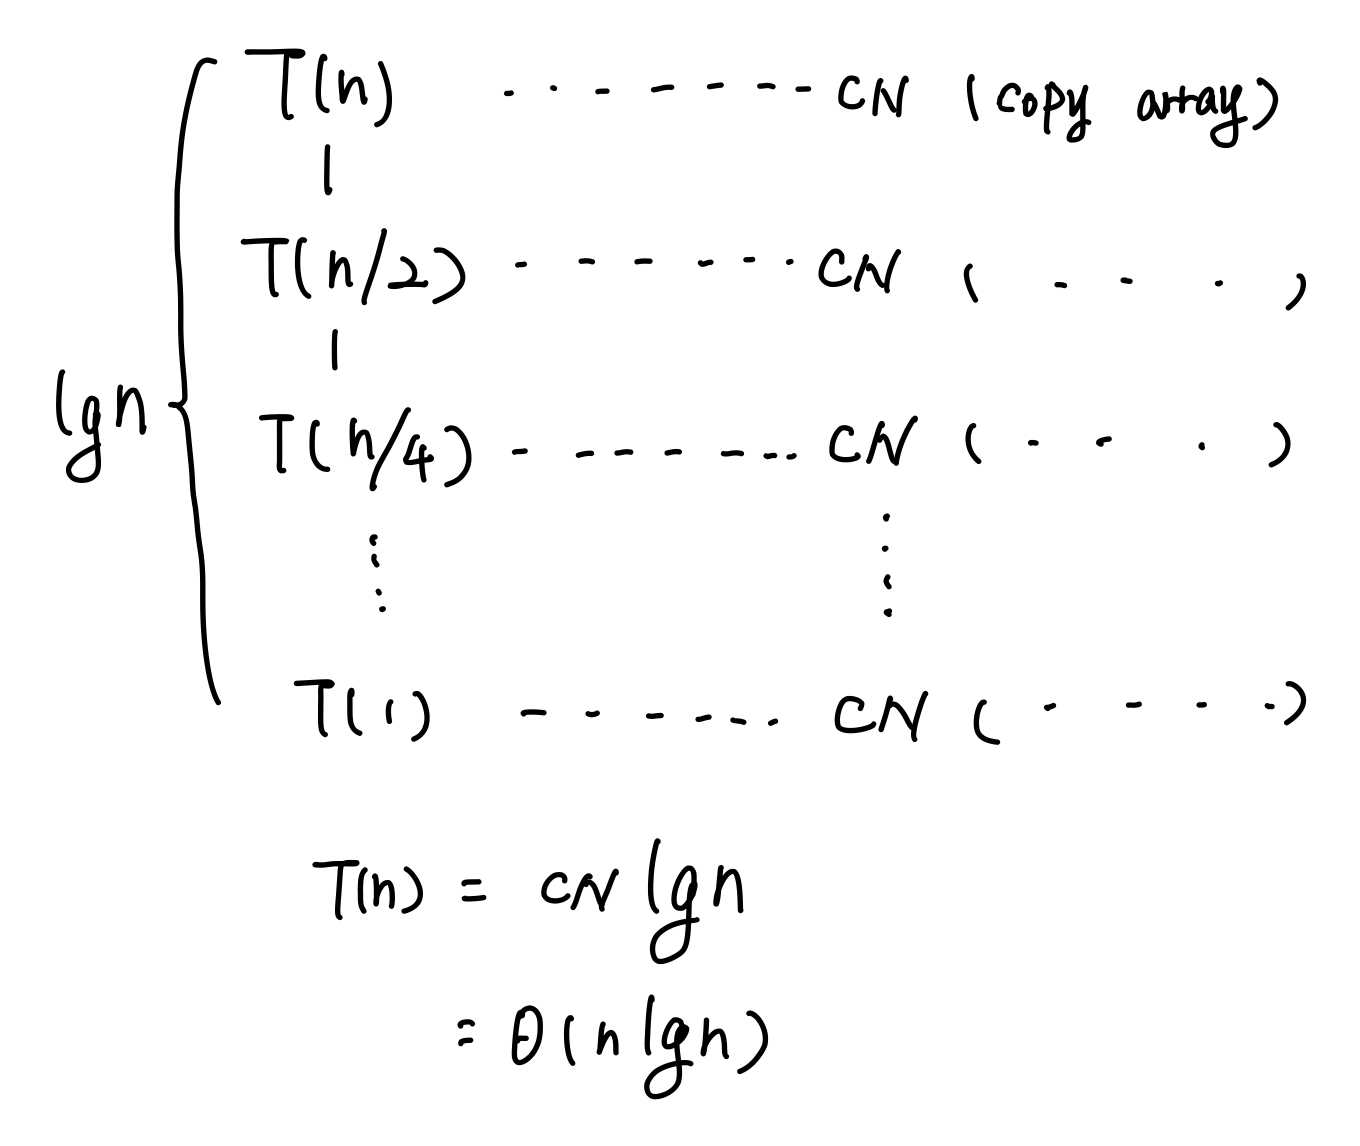 T(n) · · - - - - - CN (copy array)
|
T(n/2) - - - - - · CN ( - - · )
|
lgn { T(n/4) - - - - - - - CN ( - - · )
⋮ ⋮
T(1) - - - - - - CN ( - - - - )
T(n) = CN lgn
= θ(n lgn)